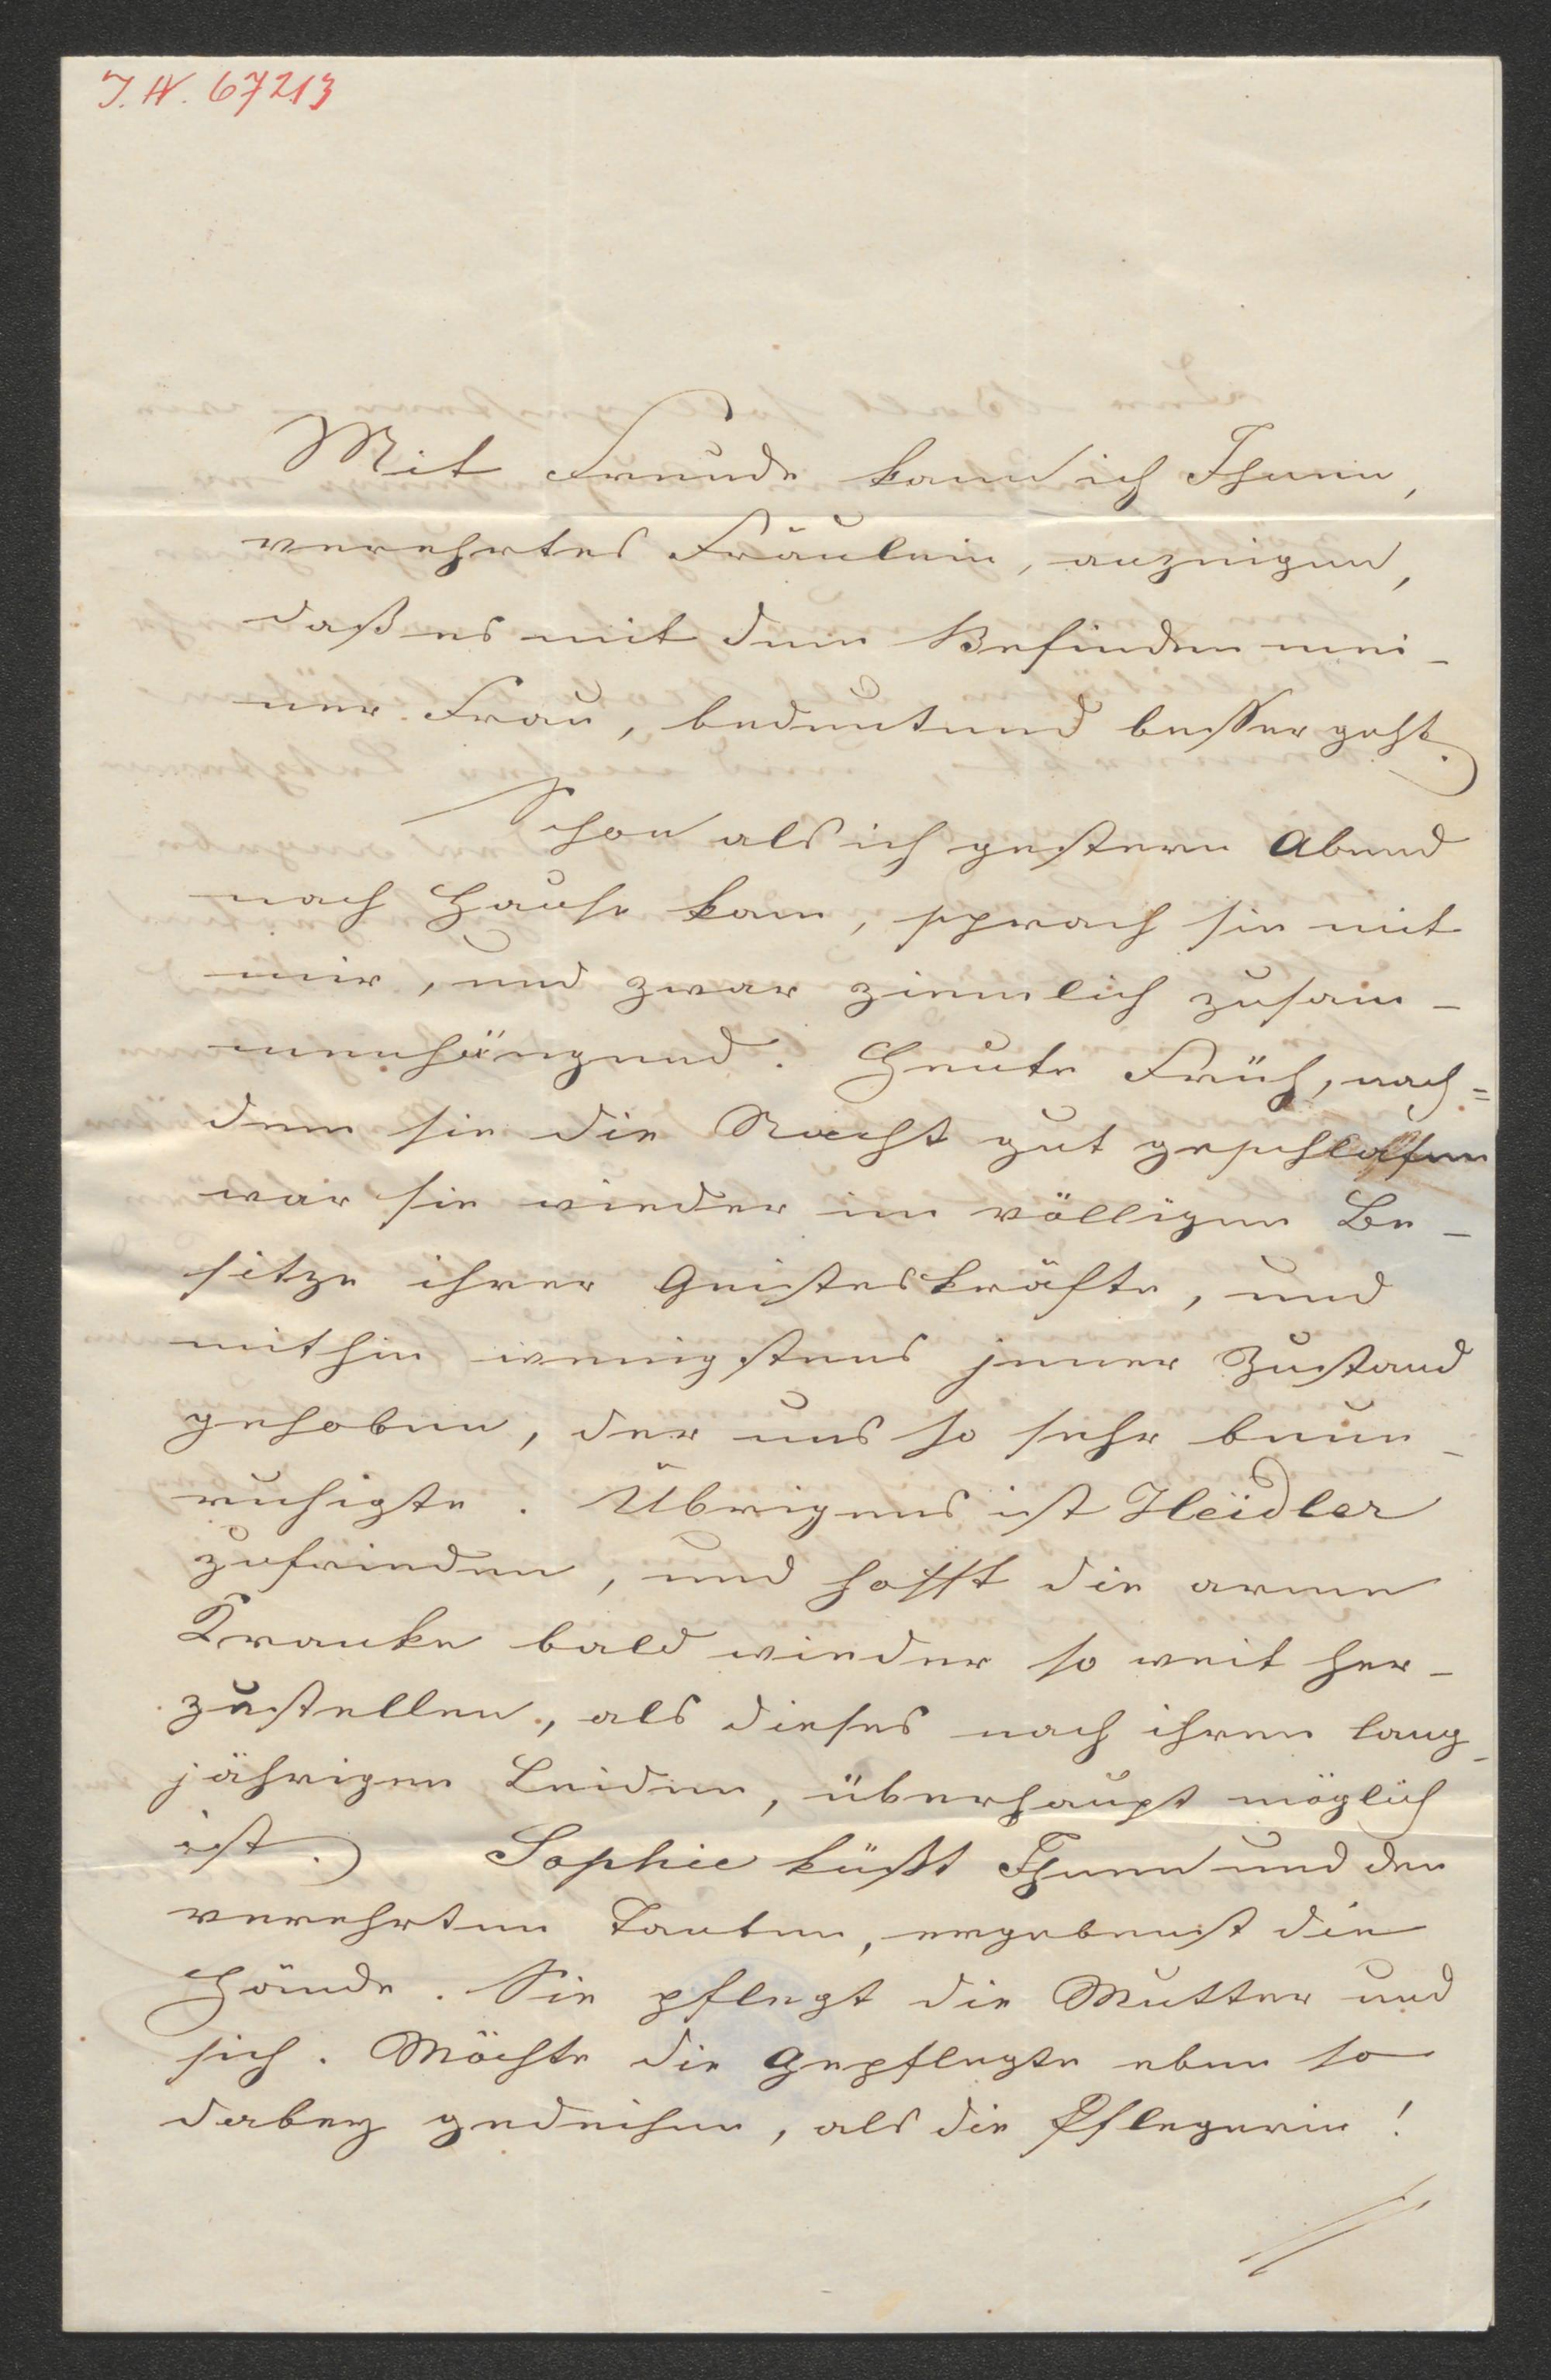 J. N. 67213
Mit Freude kann ich Ihnen,
verehrtes Fräulein, anzeigen,
daß es mit dem Befinden mei-
ner Frau, bedeutend besser geht.
Schon als ich gestern Abend
nach Hause kam, sprach sie mit
mir, und zwar ziemlich zusam-
menhängend. Heute Früh, nach=
dem sie die Nacht gut geschlafen
war sie wieder im völligen Be-
sitze ihrer Geisteskräfte, und
mithin wenigstens jener Zustand
gehoben, der uns so sehr beun-
ruhigte. Übrigens ist Heidler
zufrieden, und hofft die arme
Kranke bald wieder so weit her-
zustellen, als dieses nach ihren lang-
jährigen Leiden, überhaupt möglich
ist. Sophie küßt Ihnen und den
verehrten Tanten, ergebenst die
Hände. Sie pflegt die Mutter und
sich. Möchte die Gepflegte eben so
dabey gedeihen, als die Pflegerin!